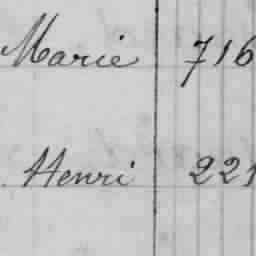 Marie 716
Henri 221